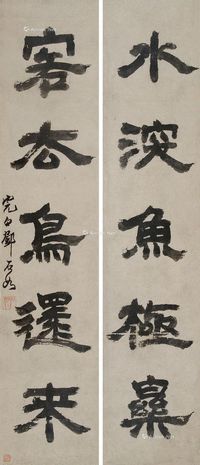 水深魚極樂
客去鳥還來
完白鄧石如